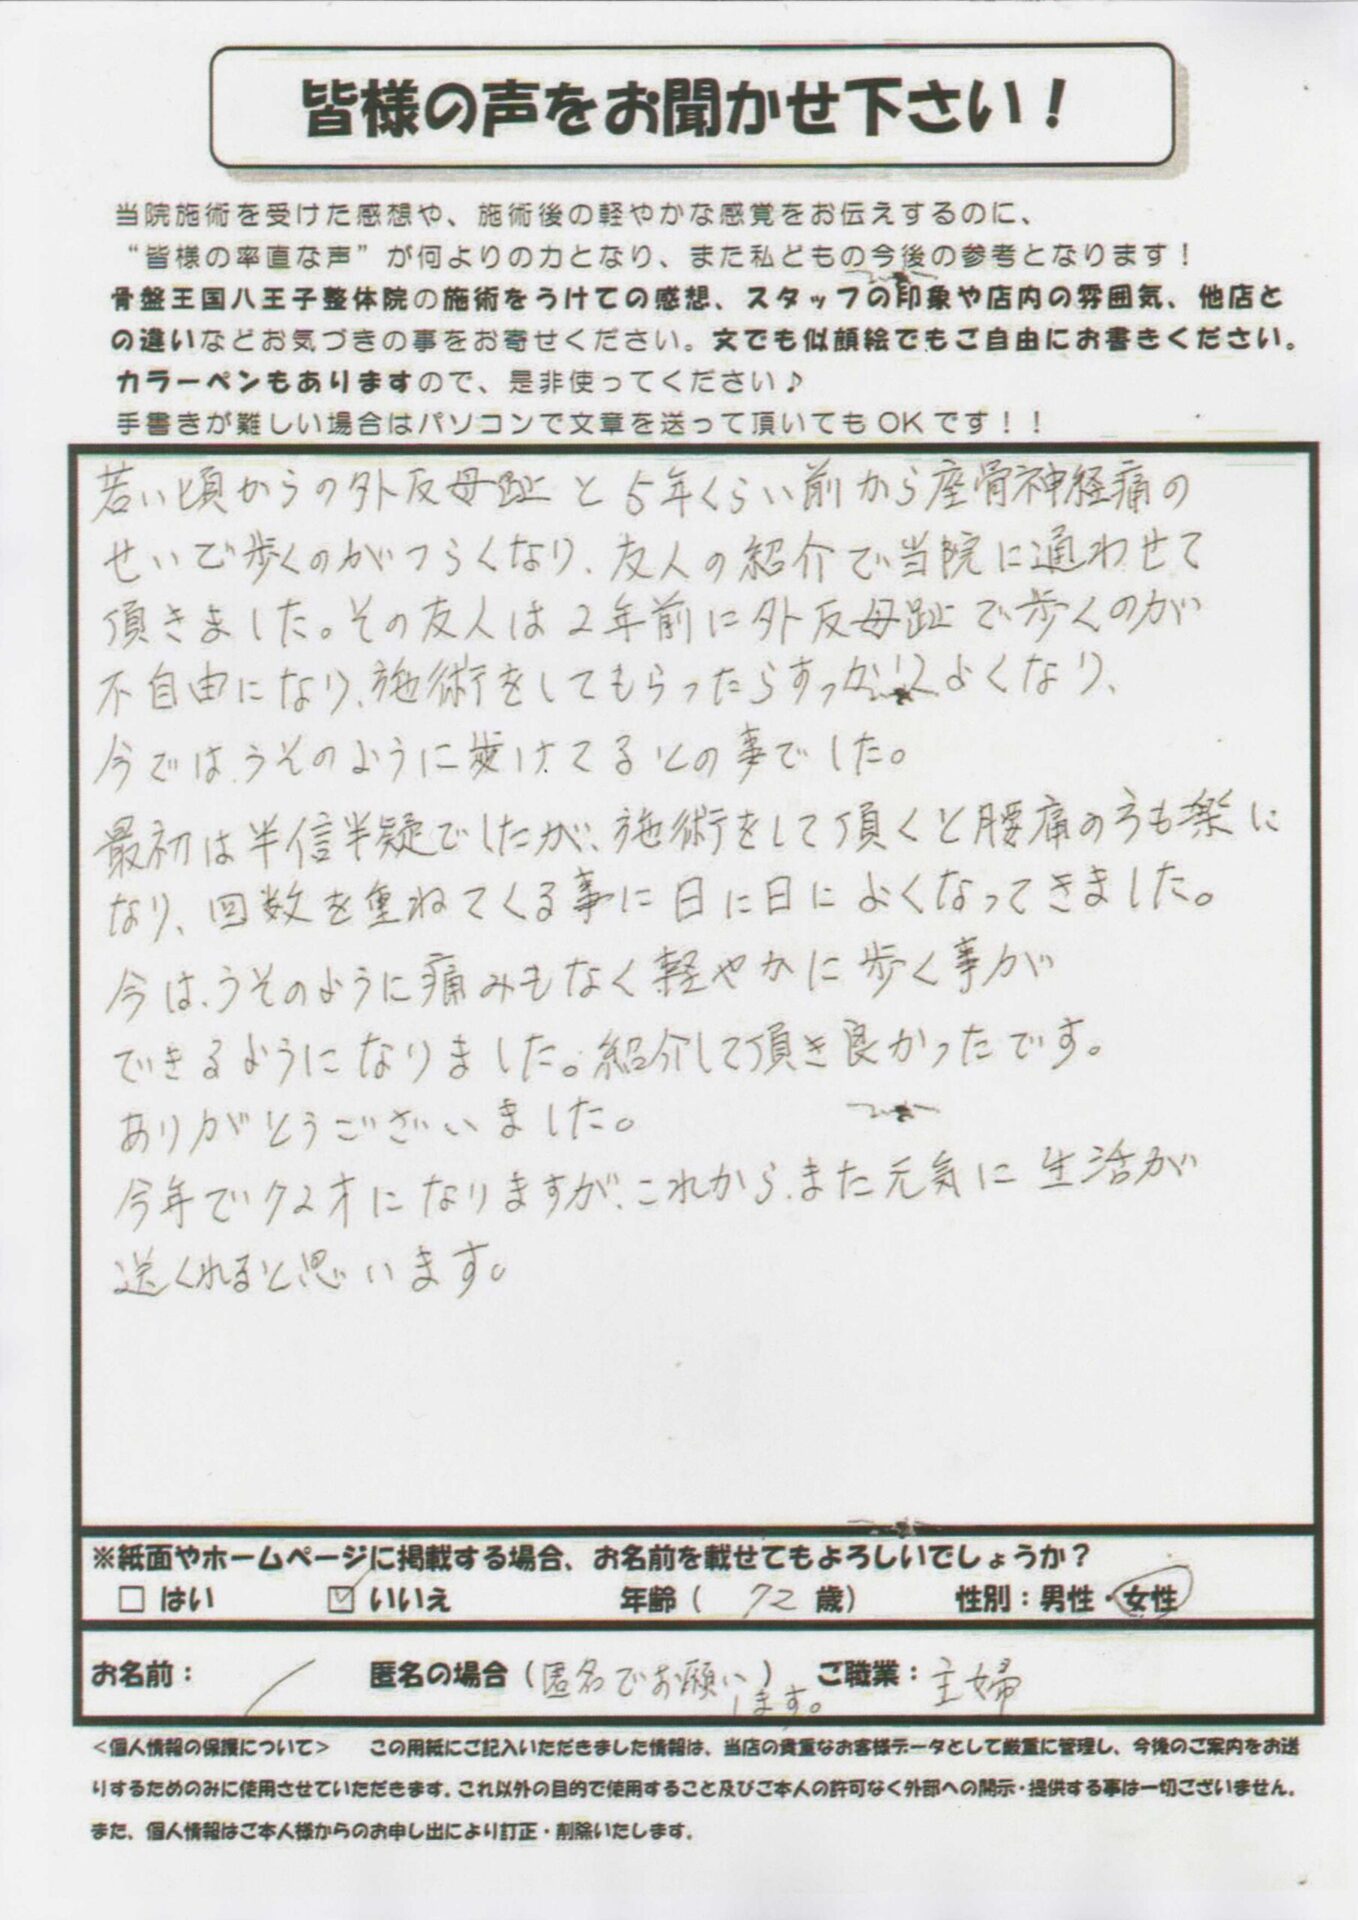 皆様の声をお聞かせ下さい！
当院施術を受けた感想や、施術後の軽やかな感覚をお伝えするのに、
“皆様の率直な声”が何よりの力となり、また私どもの今後の参考となります！
骨盤王国八王子整体院の施術をうけての感想、スタッフの印象や店内の雰囲気、他店と
の違いなどお気づきの事をお寄せください。文でも似顔絵でもご自由にお書きください。
カラーペンもありますので、是非使ってください♪
手書きが難しい場合はパソコンで文章を送って頂いてもOKです！！
若い頃からの外反母趾と5年くらい前から座骨神経痛の
せいで歩くのがつらくなり、友人の紹介で当院に通わせて
頂きました。その友人は2年前に外反母趾で歩くのが
不自由になり、施術をしてもらったらすっかりよくなり、
今では、うそのように歩けてるとの事でした。
最初は半信半疑でしたが、施術をして頂くと腰痛の方も楽に
なり、回数を重ねてくる事に日に日によくなってきました。
今は、うそのように痛みもなく軽やかに歩く事が
できるようになりました。紹介して頂き良かったです。
ありがとうございました。
今年で72才になりますが、これから、また元気に生活が
送くれると思います。
※紙面やホームページに掲載する場合、お名前を載せてもよろしいでしょうか？
□ はい ☑ いいえ 年齢（ 72 歳） 性別：男性・女性
お名前： / 匿名の場合（匿名でお願いします。） ご職業：主婦
＜個人情報の保護について＞ この用紙にご記入いただきました情報は、当店の貴重なお客様データとして厳重に管理し、今後のご案内をお送
りするためのみに使用させていただきます。これ以外の目的で使用すること及びご本人の許可なく外部への開示・提供する事は一切ございません。
また、個人情報はご本人様からのお申し出により訂正・削除いたします。